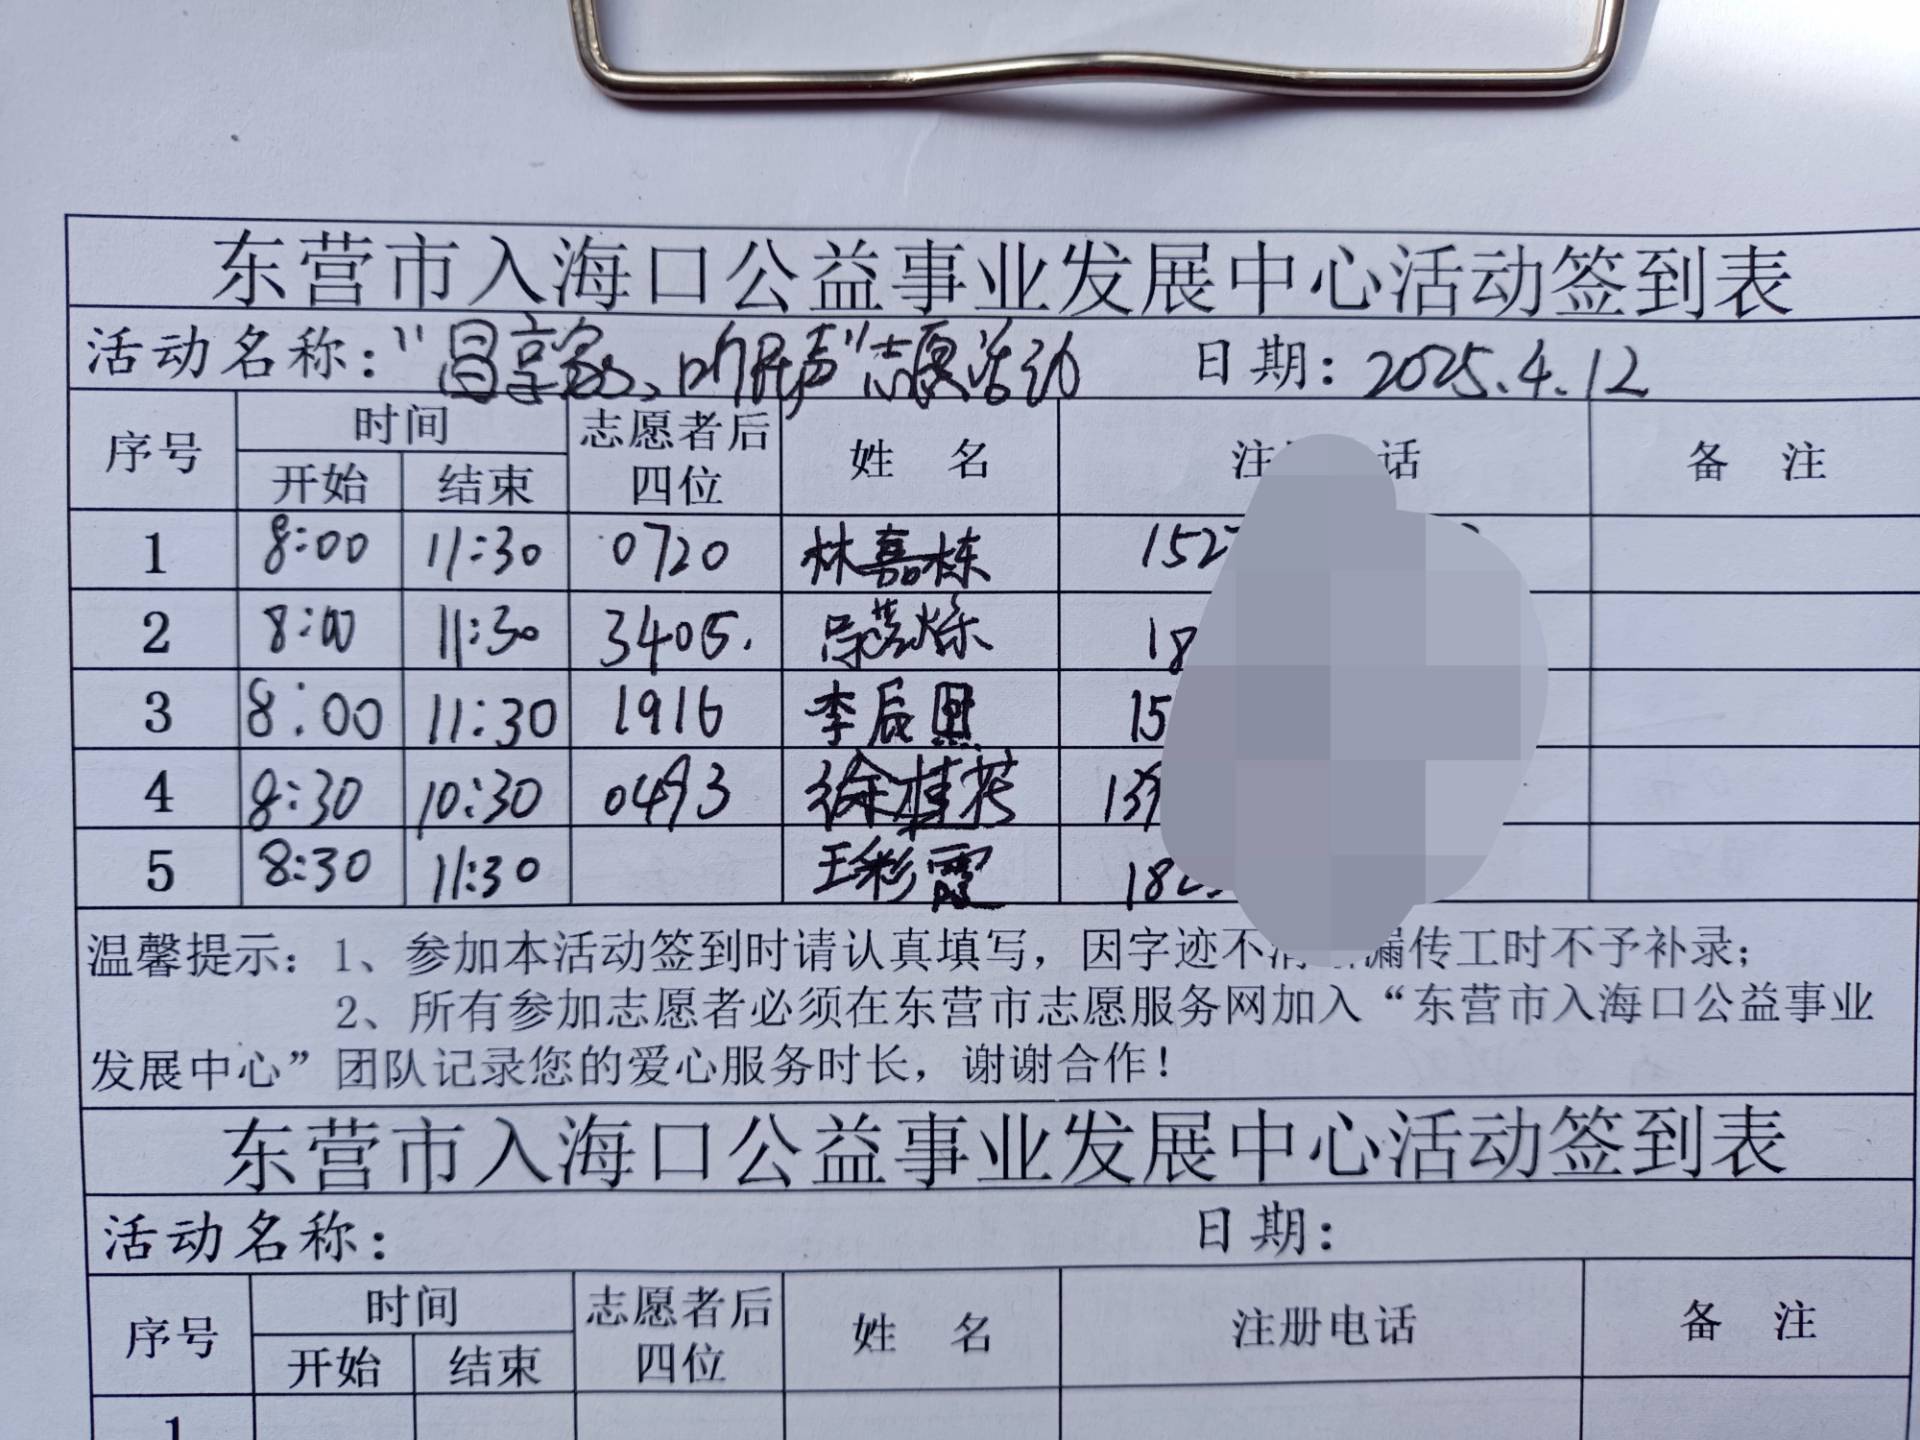 东营市入海口公益事业发展中心活动签到表
活动名称：“昌享家、听民声”志愿活动 日期：2025.4.12
序号 时间 志愿者后四位 姓 名 注 话 备 注
开始 结束
1 8:00 11:30 0720 林嘉栋 152
2 8:00 11:30 3405. 18
3 8:00 11:30 1916 李辰照 15
4 8:30 10:30 0493 徐桂芹 139
5 8:30 11:30 王彩霞 182
温馨提示：1、参加本活动签到时请认真填写，因字迹不清 漏传工时不予补录；
2、所有参加志愿者必须在东营市志愿服务网加入“东营市入海口公益事业
发展中心”团队记录您的爱心服务时长，谢谢合作！
东营市入海口公益事业发展中心活动签到表
活动名称： 日期：
序号 时间 志愿者后四位 姓 名 注册电话 备 注
开始 结束
1